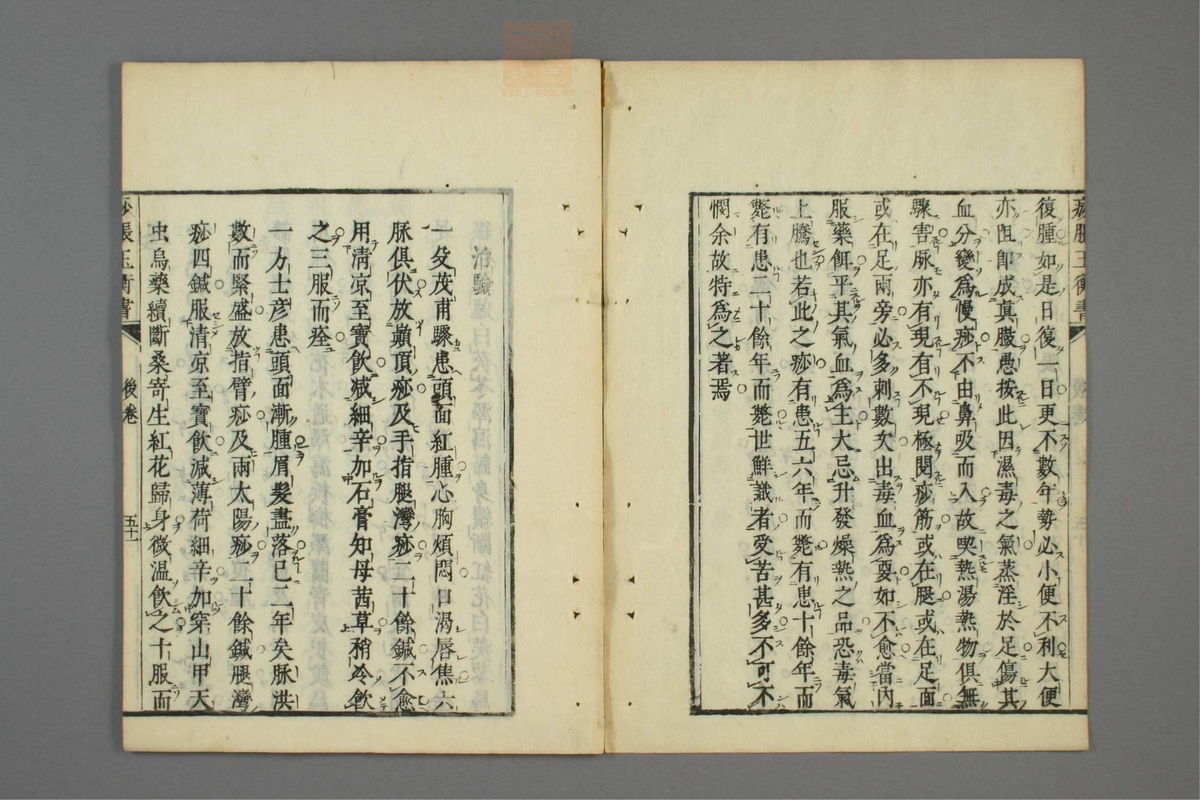 復腫如是日復一日更不數年勢必小便不利大便
亦因即成真臌愚按此因濕毒之氣蒸淫於足傷其
血分變為慢痧不由鼻吸而入故喫熱湯熱物俱無
驟害脉亦有現有不現極閱痧筋或在腿或在足面
或在足兩旁必多刺數次出毒血為要如不愈當內
服藥餌平其氣血為主大忌升發燥熱之品恐毒氣
上騰也若此之痧有患五六年而斃有患十餘年而
斃有患二十餘年而斃世鮮識者受苦甚多不可不
憫余故特為之著焉
治驗
一殳茂甫驟患頭面紅腫心胸煩悶口渴唇焦六
脉俱伏放巔頂痧及手指腿灣痧二十餘鍼不愈
用清凉至寶飲減細辛加石膏知母茜草稍冷飲
之三服而痊
一力士彦患頭面漸腫眉髮盡落已二年矣脉洪
數而緊盛放指臂痧及兩太陽痧二十餘鍼腿灣
痧四鍼服清凉至寶飲減薄荷細辛加穿山甲天
虫烏藥續斷桑寄生紅花歸身微温飲之十服而
痧脹玉衡書
後卷
五十一